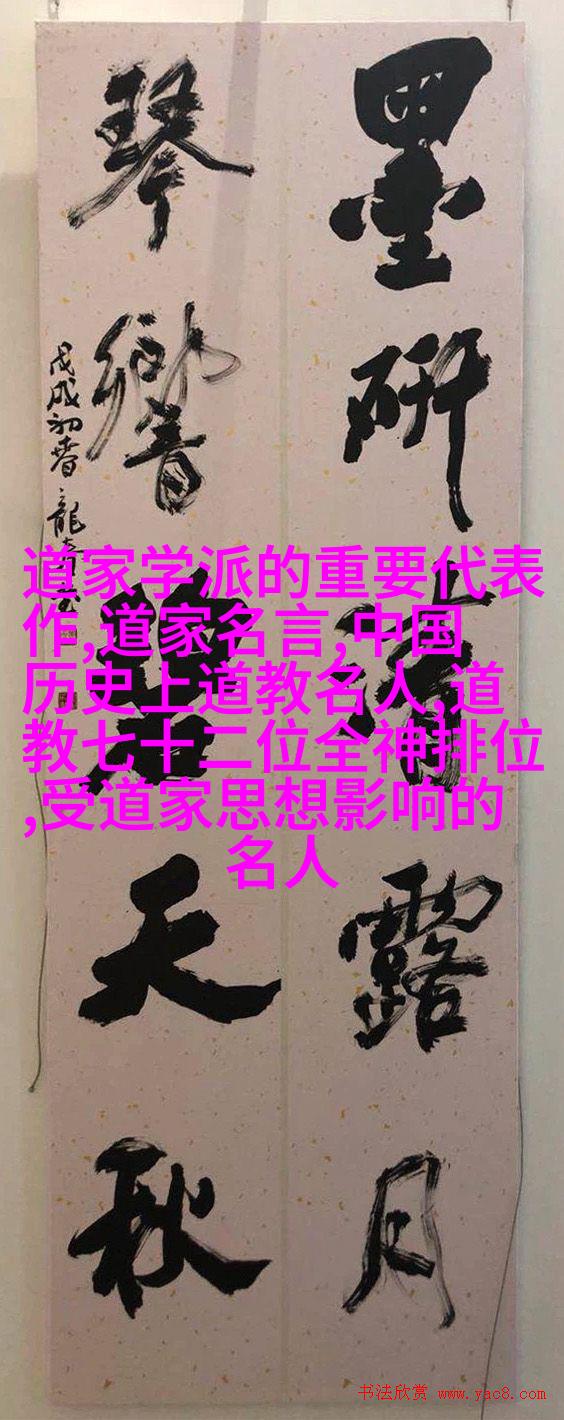 墨研清露月
琴響碧天秋
戊戌初春
道家学派的重要代表
作,道家名言,中国
历史上道教名人,道
教七十二位全神排位
,受道家思想影响的
名人
书法欣赏 www.yac8.com